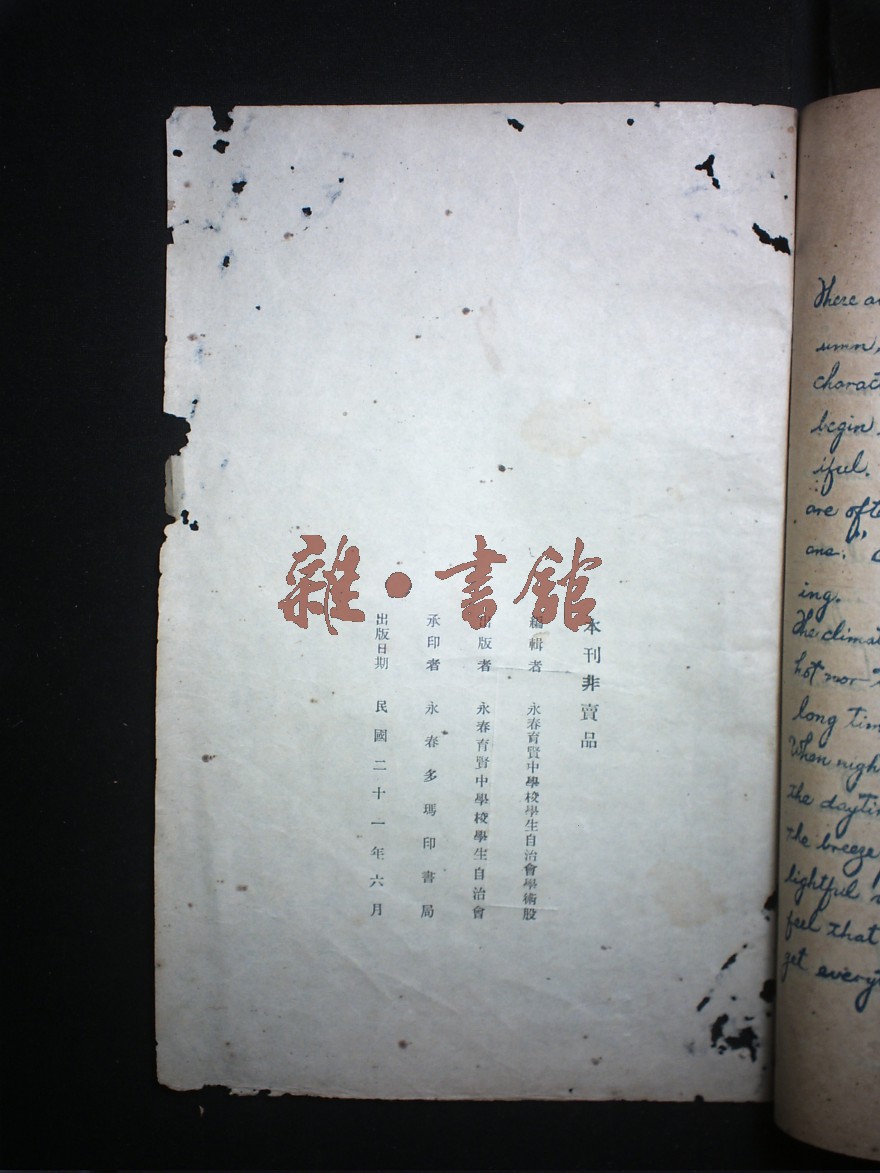 雜·書館
本刊非賣品
編輯者 永春育賢中學校學生自治會學術股
出版者 永春育賢中學校學生自治會
承印者 永春多瑪印書局
出版日期 民國二十一年六月
There a
umn,
charact
begin
iful.
are ofte
one.
ing.
The climat
hot nor t
long tim
When nigh
the daytim
the breeze
lightful
feel that
get everyt